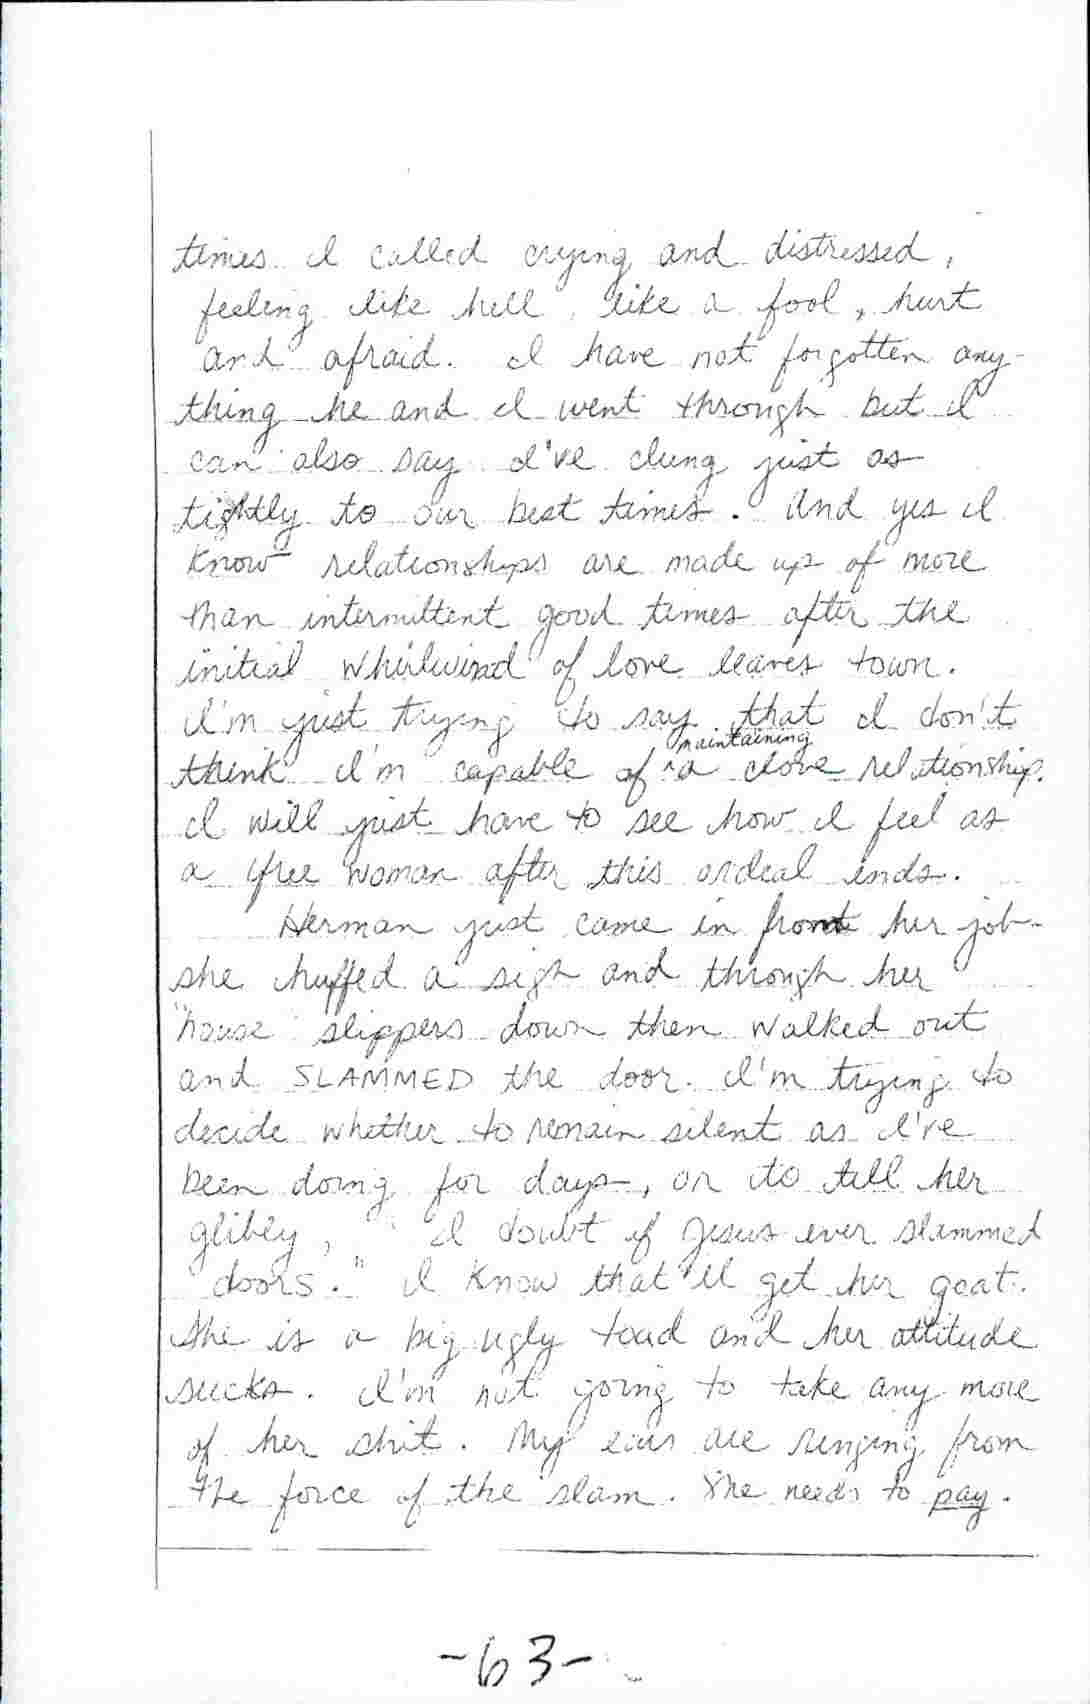 times I called crying and distressed,
feeling like hell, like a fool, hurt
and afraid. I have not forgotten any-
thing he and I went through but I
can also say I've clung just as
tightly to our best times. And yes I
know relationships are made up of more
than intermittent good times after the
initial whirlwind of love leaves town.
I'm just trying to say that I don't
maintaining
think I'm capable of ^ a close relationship.
I will just have to see how I feel as
a free woman after this ordeal ends.
Herman just came in from her job-
she huffed a sigh and through her
"house" slippers down then walked out
and SLAMMED the door. I'm trying to
decide whether to remain silent as I've
been doing for days, or to tell her
glibly, "I doubt if Jesus ever slammed
doors." I know that'll get her goat.
She is a big ugly toad and her attitude
sucks. I'm not going to take any more
of her shit. My ears are ringing from
the force of the slam. She needs to pay.
-63-